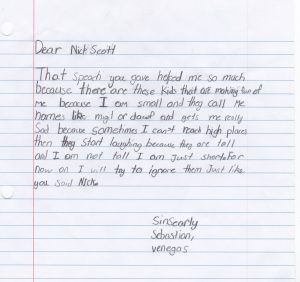 Dear Nick Scott
That speach you gave helped me so much
because there are these kids that are making fun of
me because I am small and they call me
names like migit or dawrf and gets me really
Sad because somehimes I can't reach high places
then they start laughing because they are tall
and I am not tall I am Just short. For
now on I will try to ignore them Just like
you said Nick.
Sinsearly
Sebastian,
venegas